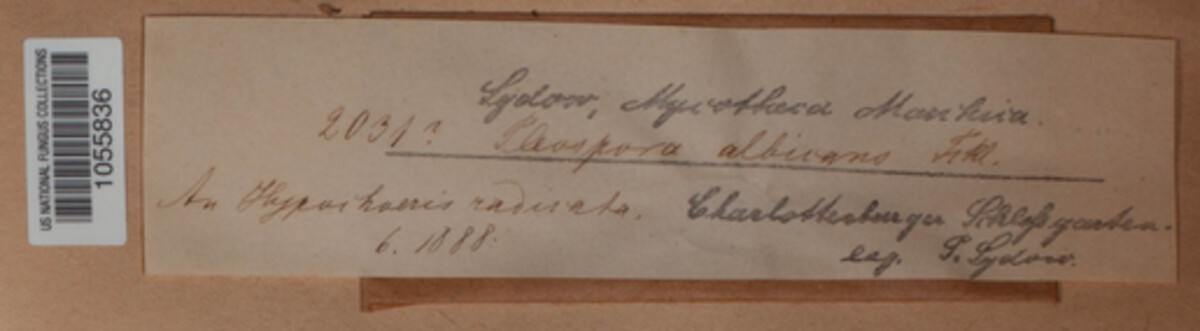 US NATIONAL FUNGUS COLLECTIONS
1055836
Sydow, Mycotheca Marchica.
2031? Pleospora albicans Fckl.
An Hypochoeris radicata. Charlottenburger Schloßgarten.
6. 1888. leg. P. Sydow.